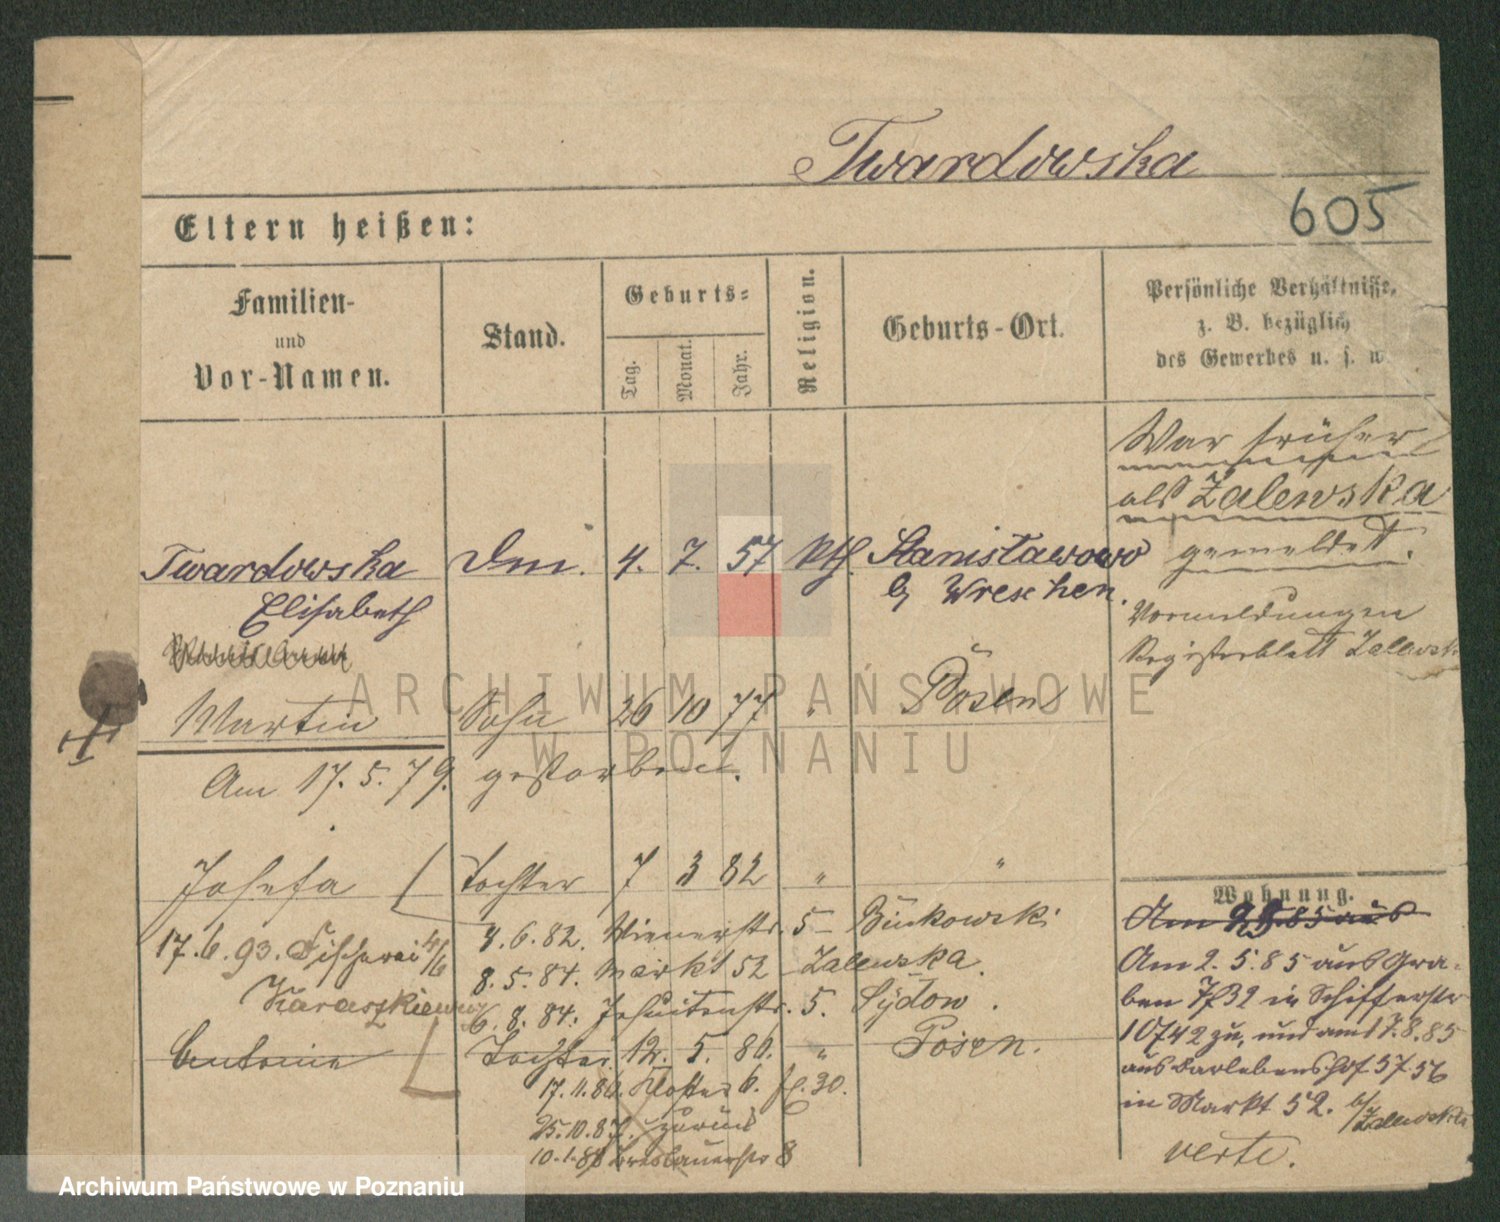 Twardowska
605
Eltern heißen:
Familien-
und
Vor-Namen.
Stand.
Geburts-
Tag.
Monat.
Jahr.
Religion.
Geburts-Ort.
Persönliche Verhältnisse,
z. B. bezüglich
des Gewerbes u. s. w.
War früher
als Zalewska
gemeldet.
Vormeldungen
Registerblatt Zalewska
Twardowska
Elisabeth
4. 7. 57 Kth. Stanislawowo
b/ Wreschen.
Martin Sohn 26 10 77 " Posen
Am 17. 5. 79. gestorben.
Josefa Tochter 7 3 82 " "
17. 6. 93. Fischerei 4/6
Karaszkiewicz
3. 6. 82. Wienerstr. 5
8. 5. 84. Markt 52 Zalewska.
6. 8. 84. Jesuitenstr. 5. Sydow.
Antonie Tochter. 12. 5. 86. " Posen.
17. 11. 86. Kloster 6.
25. 10. 87. zurück
10. 1. 88 Breslauerstr 8
Wohnung.
Am 2. 5. 85 aus Gra-
ben 7/32 in Schifferstr
10742 zu, und am 17. 8. 85
aus
in Markt 52. b/ Zalewska
verte.
ARCHIWUM PAŃSTWOWE
W POZNANIU
Archiwum Państwowe w Poznaniu